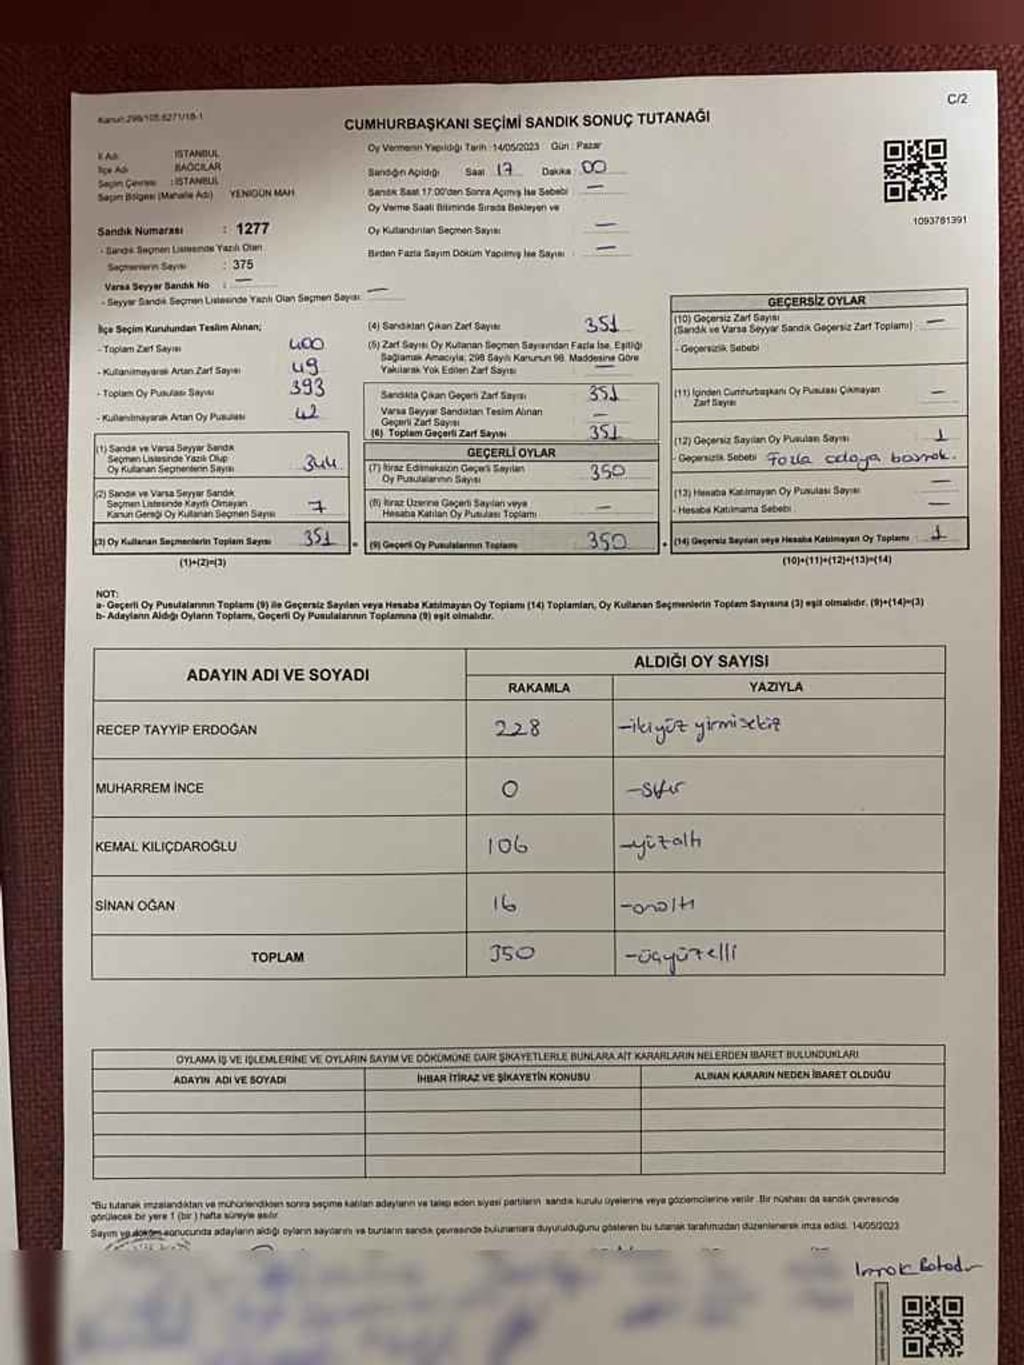 C/2
Kanun:298/105,6271/18-1
CUMHURBAŞKANI SEÇİMİ SANDIK SONUÇ TUTANAĞI
İl Adı : İSTANBUL
İlçe Adı : BAĞCILAR
Seçim Çevresi : İSTANBUL
Seçim Bölgesi (Mahalle Adı) YENİGÜN MAH.
Sandık Numarası : 1277
- Sandık Seçmen Listesinde Yazılı Olan
Seçmenlerin Sayısı : 375
Varsa Seyyar Sandık No : —
- Seyyar Sandık Seçmen Listesinde Yazılı Olan Seçmen Sayısı: —
Oy Vermenin Yapıldığı Tarih :14/05/2023 Gün : Pazar
Sandığın Açıldığı Saat 17 Dakika 00
Sandık Saat 17:00'den Sonra Açımış İse Sebebi —
Oy Verme Saati Bitiminde Sırada Bekleyen ve
Oy Kullandırılan Seçmen Sayısı —
Birden Fazla Sayım Döküm Yapılmış İse Sayısı : —
1093781391
İlçe Seçim Kurulundan Teslim Alınan;
- Toplam Zarf Sayısı 400
- Kullanılmayarak Artan Zarf Sayısı 49
- Toplam Oy Pusulası Sayısı 393
- Kullanılmayarak Artan Oy Pusulası 42
(1) Sandık ve Varsa Seyyar Sandık
Seçmen Listesinde Yazılı Olup
Oy Kullanan Seçmenlerin Sayısı 344
(2) Sandık ve Varsa Seyyar Sandık
Seçmen Listesinde Kayıtlı Olmayan
Kanun Gereği Oy Kullanan Seçmen Sayısı 7
(3) Oy Kullanan Seçmenlerin Toplam Sayısı 351
(1)+(2)=(3)
(4) Sandıktan Çıkan Zarf Sayısı 351
(5) Zarf Sayısı Oy Kullanan Seçmen Sayısından Fazla İse, Eşitliği
Sağlamak Amacıyla; 298 Sayılı Kanunun 98. Maddesine Göre
Yakılarak Yok Edilen Zarf Sayısı —
Sandıkta Çıkan Geçerli Zarf Sayısı 351
Varsa Seyyar Sandıktan Teslim Alınan
Geçerli Zarf Sayısı —
(6) Toplam Geçerli Zarf Sayısı 351
GEÇERLİ OYLAR
(7) İtiraz Edilmeksizin Geçerli Sayılan
Oy Pusulalarının Sayısı 350
(8) İtiraz Üzerine Geçerli Sayılan veya
Hesaba Katılan Oy Pusulası Toplamı —
= (9) Geçerli Oy Pusulalarının Toplamı 350
GEÇERSİZ OYLAR
(10) Geçersiz Zarf Sayısı
(Sandık ve Varsa Seyyar Sandık Geçersiz Zarf Toplamı) —
- Geçersizlik Sebebi
(11) İçinden Cumhurbaşkanı Oy Pusulası Çıkmayan
Zarf Sayısı —
(12) Geçersiz Sayılan Oy Pusulası Sayısı 1
- Geçersizlik Sebebi Fazla adaya basmak.
(13) Hesaba Katılmayan Oy Pusulası Sayısı —
- Hesaba Katılmama Sebebi —
+ (14) Geçersiz Sayılan veya Hesaba Katılmayan Oy Toplamı 1
(10)+(11)+(12)+(13)=(14)
NOT:
a- Geçerli Oy Pusulalarının Toplamı (9) ile Geçersiz Sayılan veya Hesaba Katılmayan Oy Toplamı (14) Toplamları, Oy Kullanan Seçmenlerin Toplam Sayısına (3) eşit olmalıdır. (9)+(14)=(3)
b- Adayların Aldığı Oyların Toplamı, Geçerli Oy Pusulalarının Toplamına (9) eşit olmalıdır.
ADAYIN ADI VE SOYADI ALDIĞI OY SAYISI
RAKAMLA YAZIYLA
RECEP TAYYİP ERDOĞAN 228 -ikiyüz yirmisekiz
MUHARREM İNCE 0 -sıfır
KEMAL KILIÇDAROĞLU 106 -yüzaltı
SİNAN OĞAN 16 -onaltı
TOPLAM 350 -üçyüzelli
OYLAMA İŞ VE İŞLEMLERİNE VE OYLARIN SAYIM VE DÖKÜMÜNE DAİR ŞİKAYETLERLE BUNLARA AİT KARARLARIN NELERDEN İBARET BULUNDUKLARI
ADAYIN ADI VE SOYADI İHBAR İTİRAZ VE ŞİKAYETİN KONUSU ALINAN KARARIN NEDEN İBARET OLDUĞU
*Bu tutanak imzalandıktan ve mühürlendikten sonra seçime katılan adayların ve talep eden siyasi partilerin sandık kurulu üyelerine veya gözlemcilerine verilir. Bir nüshası da sandık çevresinde
görülecek bir yere 1 (bir) hafta süreyle asılır.
Sayım ve döküm sonucunda adayların aldığı oyların sayılarını ve bunların sandık çevresinde bulunanlara duyurulduğunu gösteren bu tutanak tarafımızdan düzenlenerek imza edildi. 14/05/2023